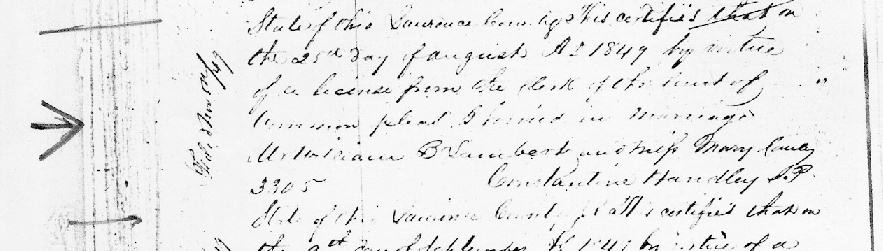 State of Ohio Lawrence County This certifies that on
the 25th day of august AD 1849 by virtue
of a license from the clerk of the court of
Common pleas I joined in marriage
Mr William B Lambert and miss Mary
3305 Constantine Handley J.P.
State of Ohio Lawrence County certifies that on
the day of September by virtue of a